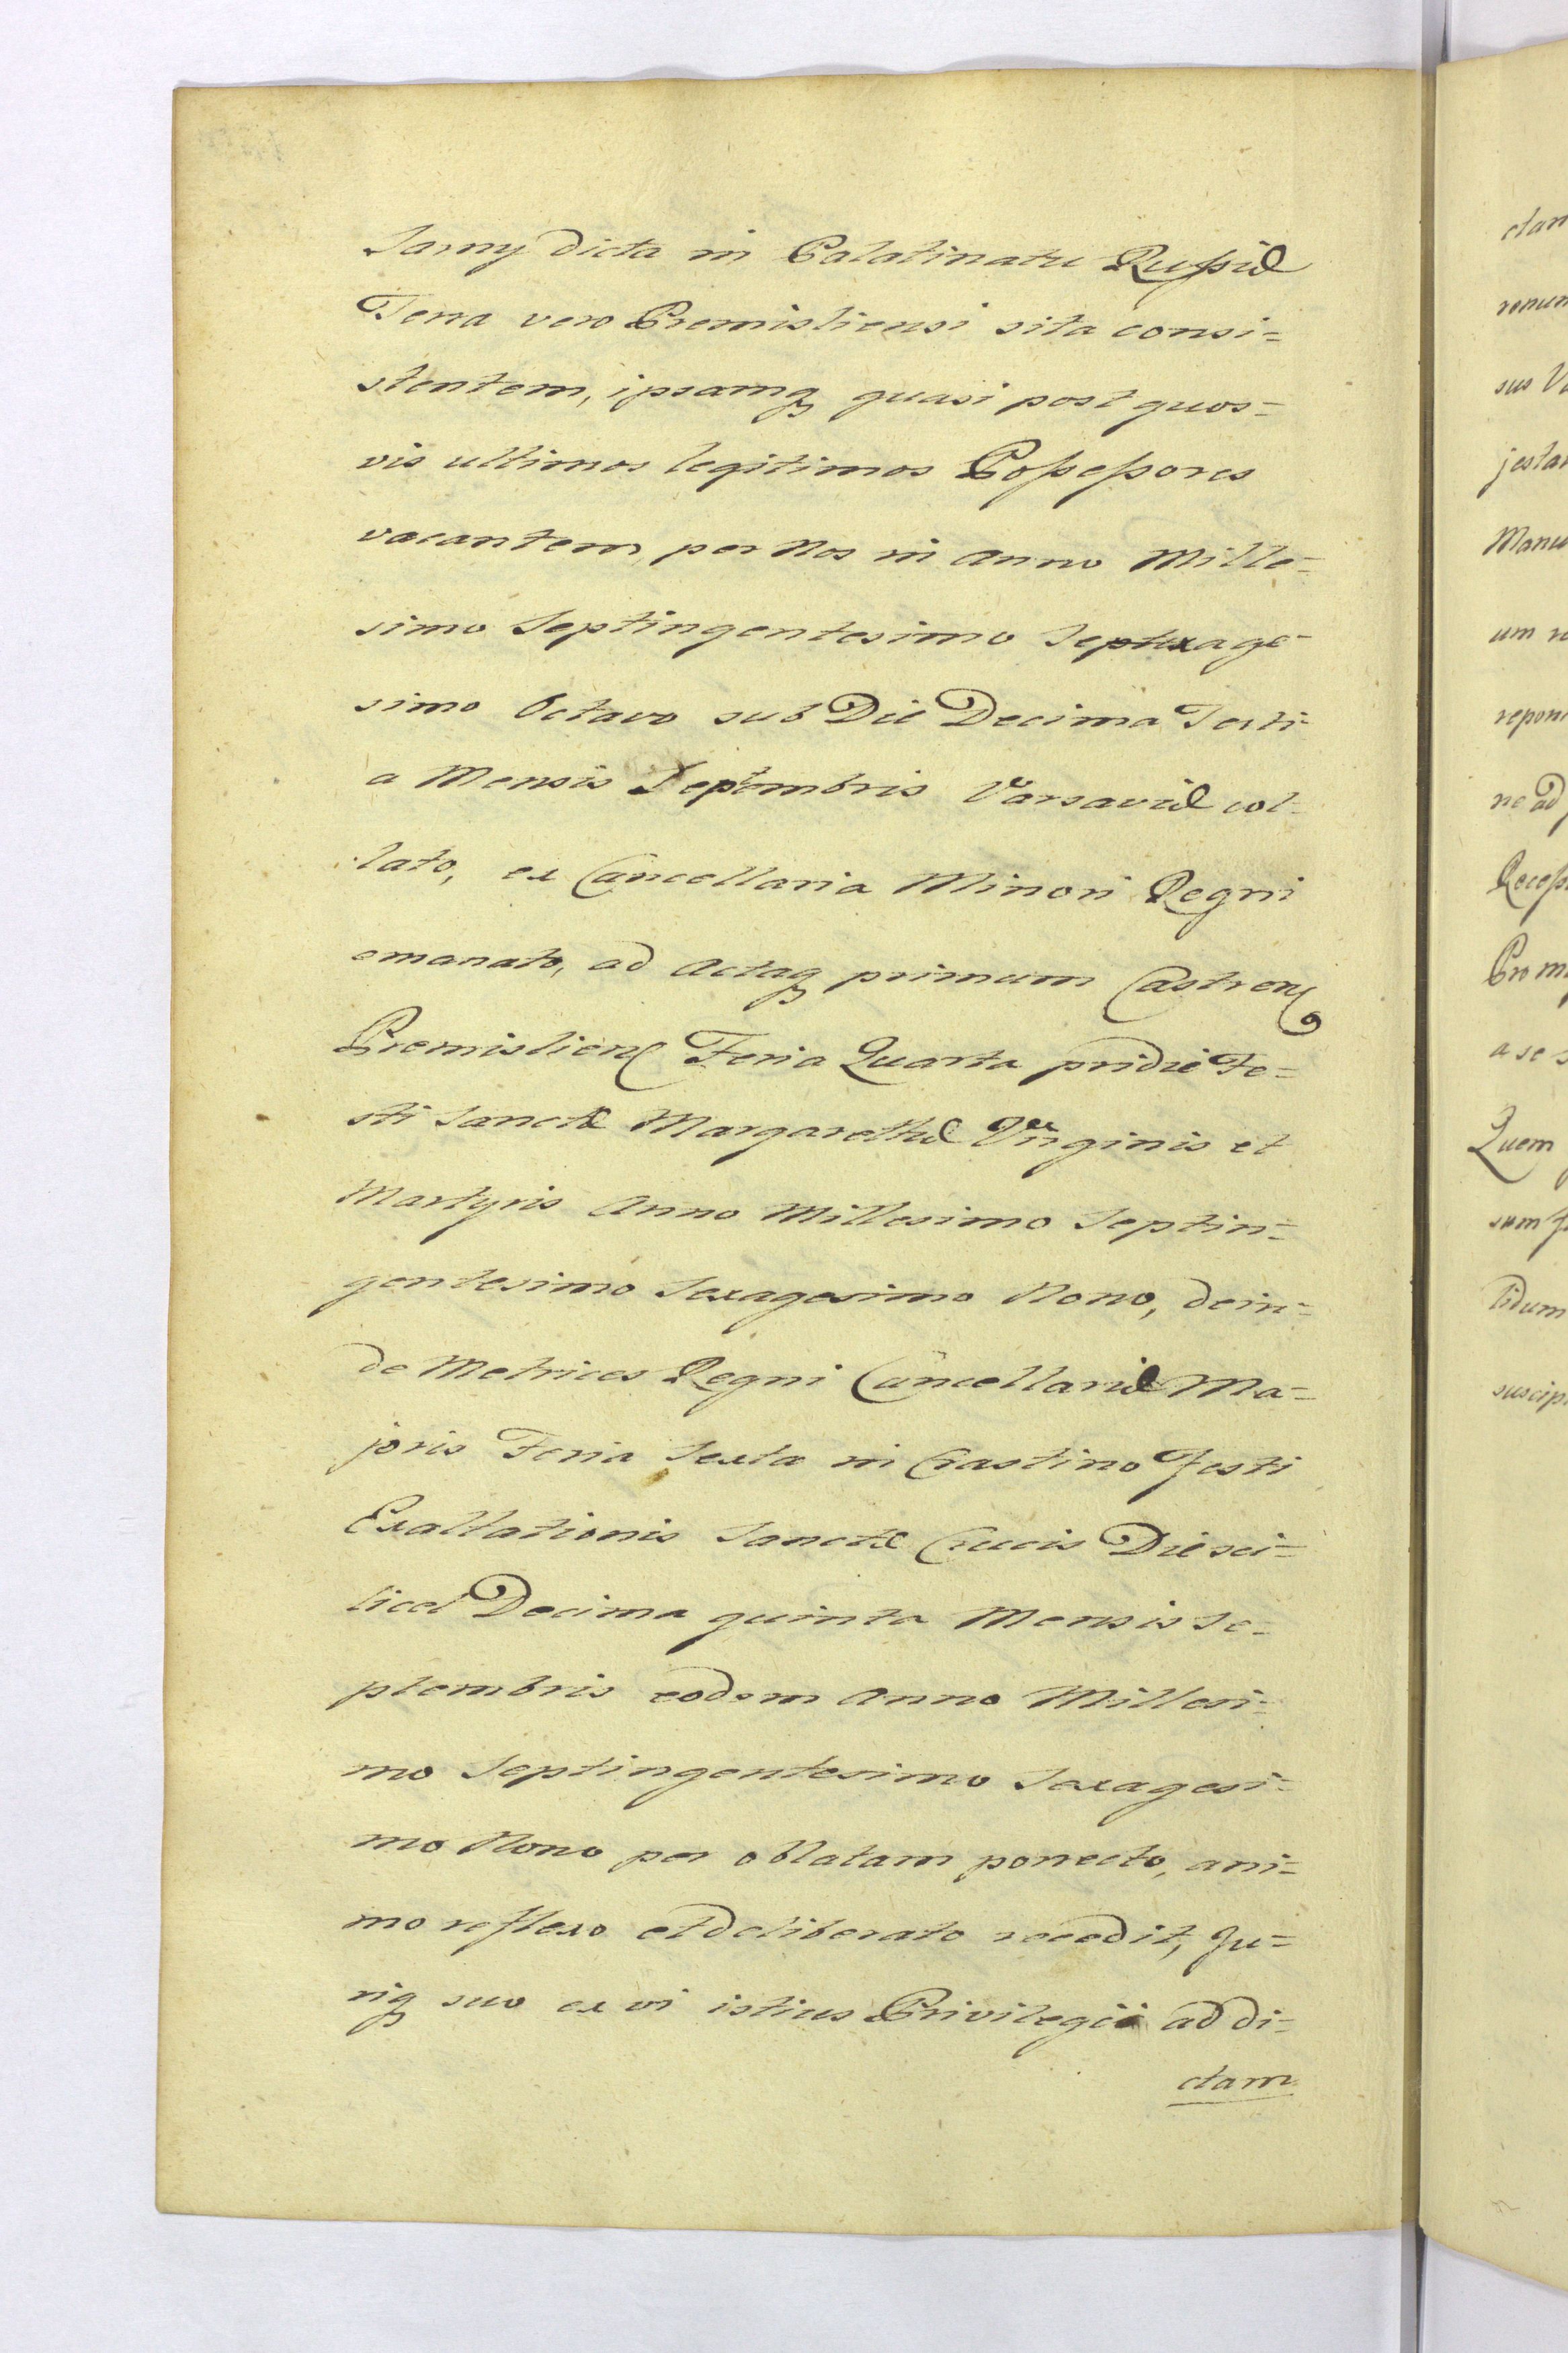 Sarny dicta in Palatinatu Russiæ
Terra vero Premisliensi sita consi=
stentem, ipsamq₃ quasi post quos=
vis ultimos legitimos Possessores
vacantem, per Nos in Anno Mille=
simo Septingentesimo Septuage=
simo Octavo sub Die Decima Terti=
a Mensis Septembris Varsaviæ col=
lato, ex Cancellaria Minori Regni
emanato, ad Actaq₃ primum Castren
Premislien Feria Quarta pridie Fe=
sti Sanctæ Margarethæ Virginis et
Martyris Anno Millesimo Septin=
gentesimo Sexagesimo Nono, dein=
de Metrices Regni Cancellariæ Ma=
joris Feria Sexta in Crastino Festi
Exaltationis Sanctæ Crucis Die sci=
licet Decima quinta Mensis Se=
ptembris eodem Anno Millesi=
mo Septingentesimo Sexagesi=
mo Nono per oblatam porrecto, ani=
mo reflexo et deliberato recedit, Ju=
riq₃ suo ex vi istius Privilegii ad di=
ctam
ctam
sus
Manu
um
ne ad
a se
Quem
sum
lidum